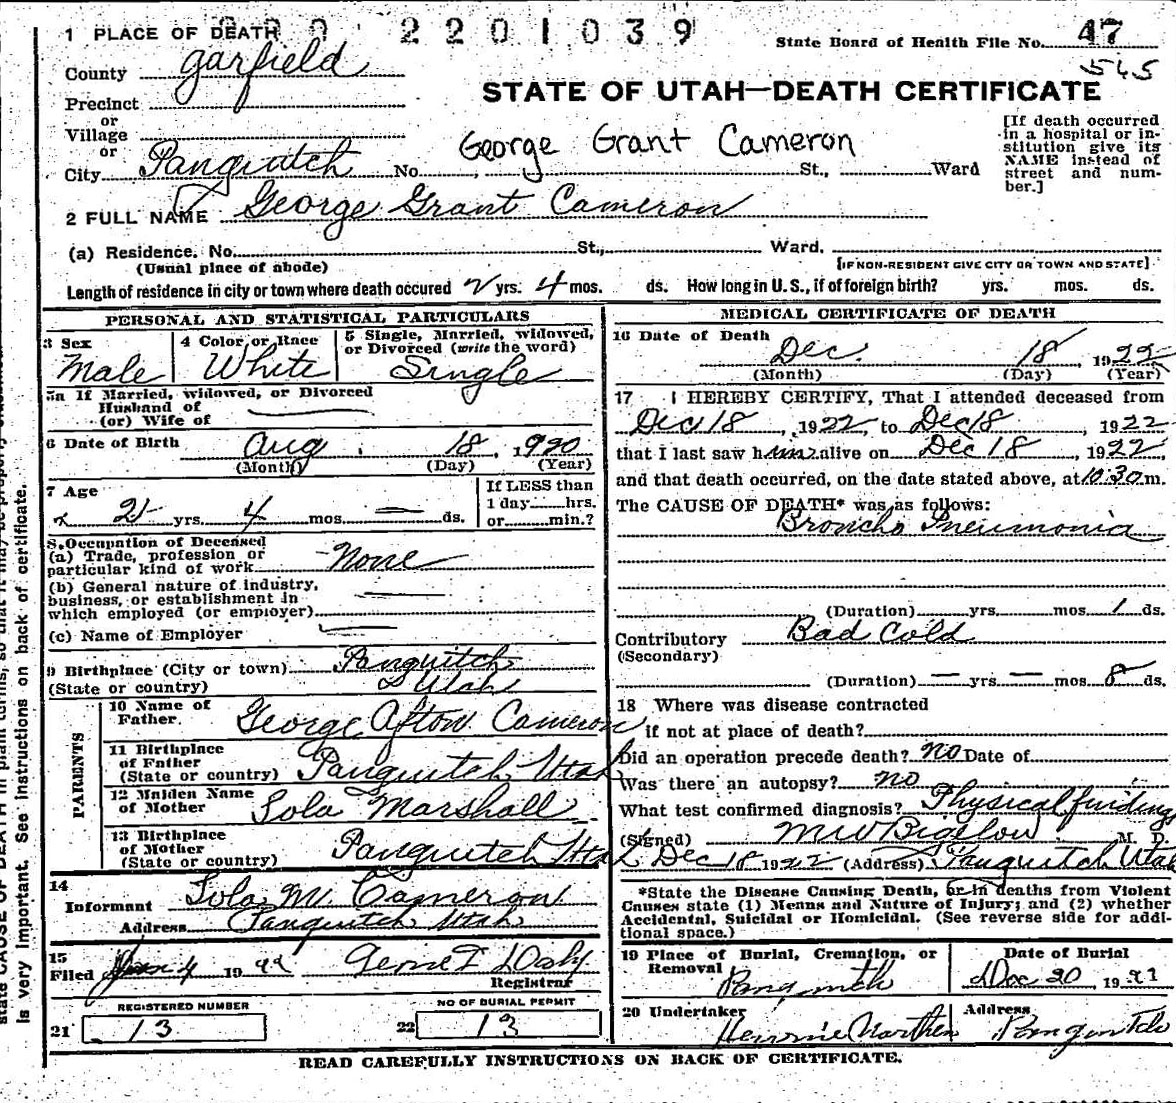 1 PLACE OF DEATH 2201039 State Board of Health File No. 47
545
County Garfield
STATE OF UTAH—DEATH CERTIFICATE
Precinct
or
Village
or
City Panguitch No. St., Ward
George Grant Cameron
[If death occurred
in a hospital or in-
stitution give its
NAME instead of
street and num-
ber.]
2 FULL NAME George Grant Cameron
(a) Residence. No. St., Ward.
(Usual place of abode) [IF NON-RESIDENT GIVE CITY OR TOWN AND STATE]
Length of residence in city or town where death occured 2 yrs. 4 mos. ds. How long in U.S., if of foreign birth? yrs. mos. ds.
PERSONAL AND STATISTICAL PARTICULARS
3 Sex
Male
4 Color or Race
White
5 Single, Married, widowed,
or Divorced (write the word)
Single
5a If Married, widowed, or Divorced
Husband of
(or) Wife of
6 Date of Birth Aug 18, 1920
(Month) (Day) (Year)
7 Age
2 yrs. 4 mos. — ds.
If LESS than
1 day hrs.
or min.?
8. Occupation of Deceased
(a) Trade, profession or
particular kind of work None
(b) General nature of industry,
business, or establishment in
which employed (or employer)
(c) Name of Employer
9 Birthplace (City or town) Panguitch
(State or country) Utah
PARENTS
10 Name of
Father. George Afton Cameron
11 Birthplace
of Father
(State or country) Panguitch Utah
12 Maiden Name
of Mother Lola Marshall
13 Birthplace
of Mother
(State or country) Panguitch Utah
14
Informant Lola M. Cameron
Address Panguitch Utah
15
Filed 4 19
Registrar
REGISTERED NUMBER
21 13
NO OF BURIAL PERMIT
22 13
MEDICAL CERTIFICATE OF DEATH
16 Date of Death
Dec. 18, 1922
(Month) (Day) (Year)
17 I HEREBY CERTIFY, That I attended deceased from
Dec 18, 1922, to Dec 18, 1922
that I last saw him alive on Dec 18, 1922,
and that death occurred, on the date stated above, at 10:30 m.
The CAUSE OF DEATH* was as follows:
Broncho Pneumonia
(Duration) yrs. mos. 1 ds.
Contributory Bad Cold
(Secondary)
(Duration) — yrs. — mos. 8 ds.
18 Where was disease contracted
if not at place of death?
Did an operation precede death? no Date of
Was there an autopsy? no
What test confirmed diagnosis? Physical findings
(Signed) M W Bigelow M. D.
Dec 18 1922 (Address) Panguitch Utah
*State the Disease Causing Death, or in deaths from Violent
Causes state (1) Means and Nature of Injury; and (2) whether
Accidental, Suicidal or Homicidal. (See reverse side for addi-
tional space.)
19 Place of Burial, Cremation, or
Removal
Panguitch
Date of Burial
Dec 20 19
20 Undertaker
Address
Panguitch
READ CAREFULLY INSTRUCTIONS ON BACK OF CERTIFICATE.
state CAUSE OF DEATH in plain terms, so that it may be properly
is very important. See instructions on back of certificate.